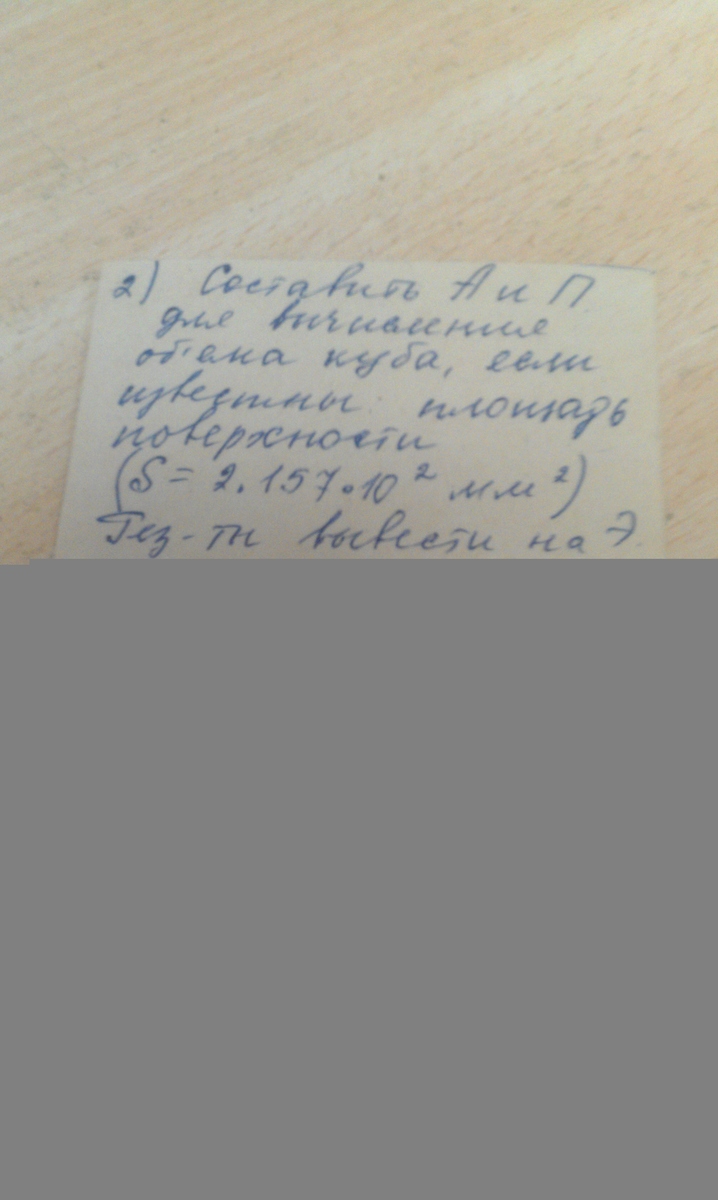 2) Составить А и П
для вычисления
об'ема куба, если
известны площадь
поверхности
(S = 2.157•10² мм²)
Рез-ты вывести на Э.